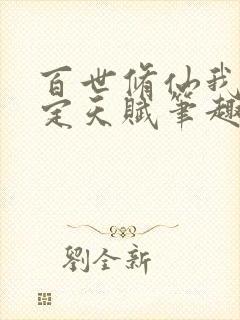 百世脩仙我
定天賦筆趣
劉全新